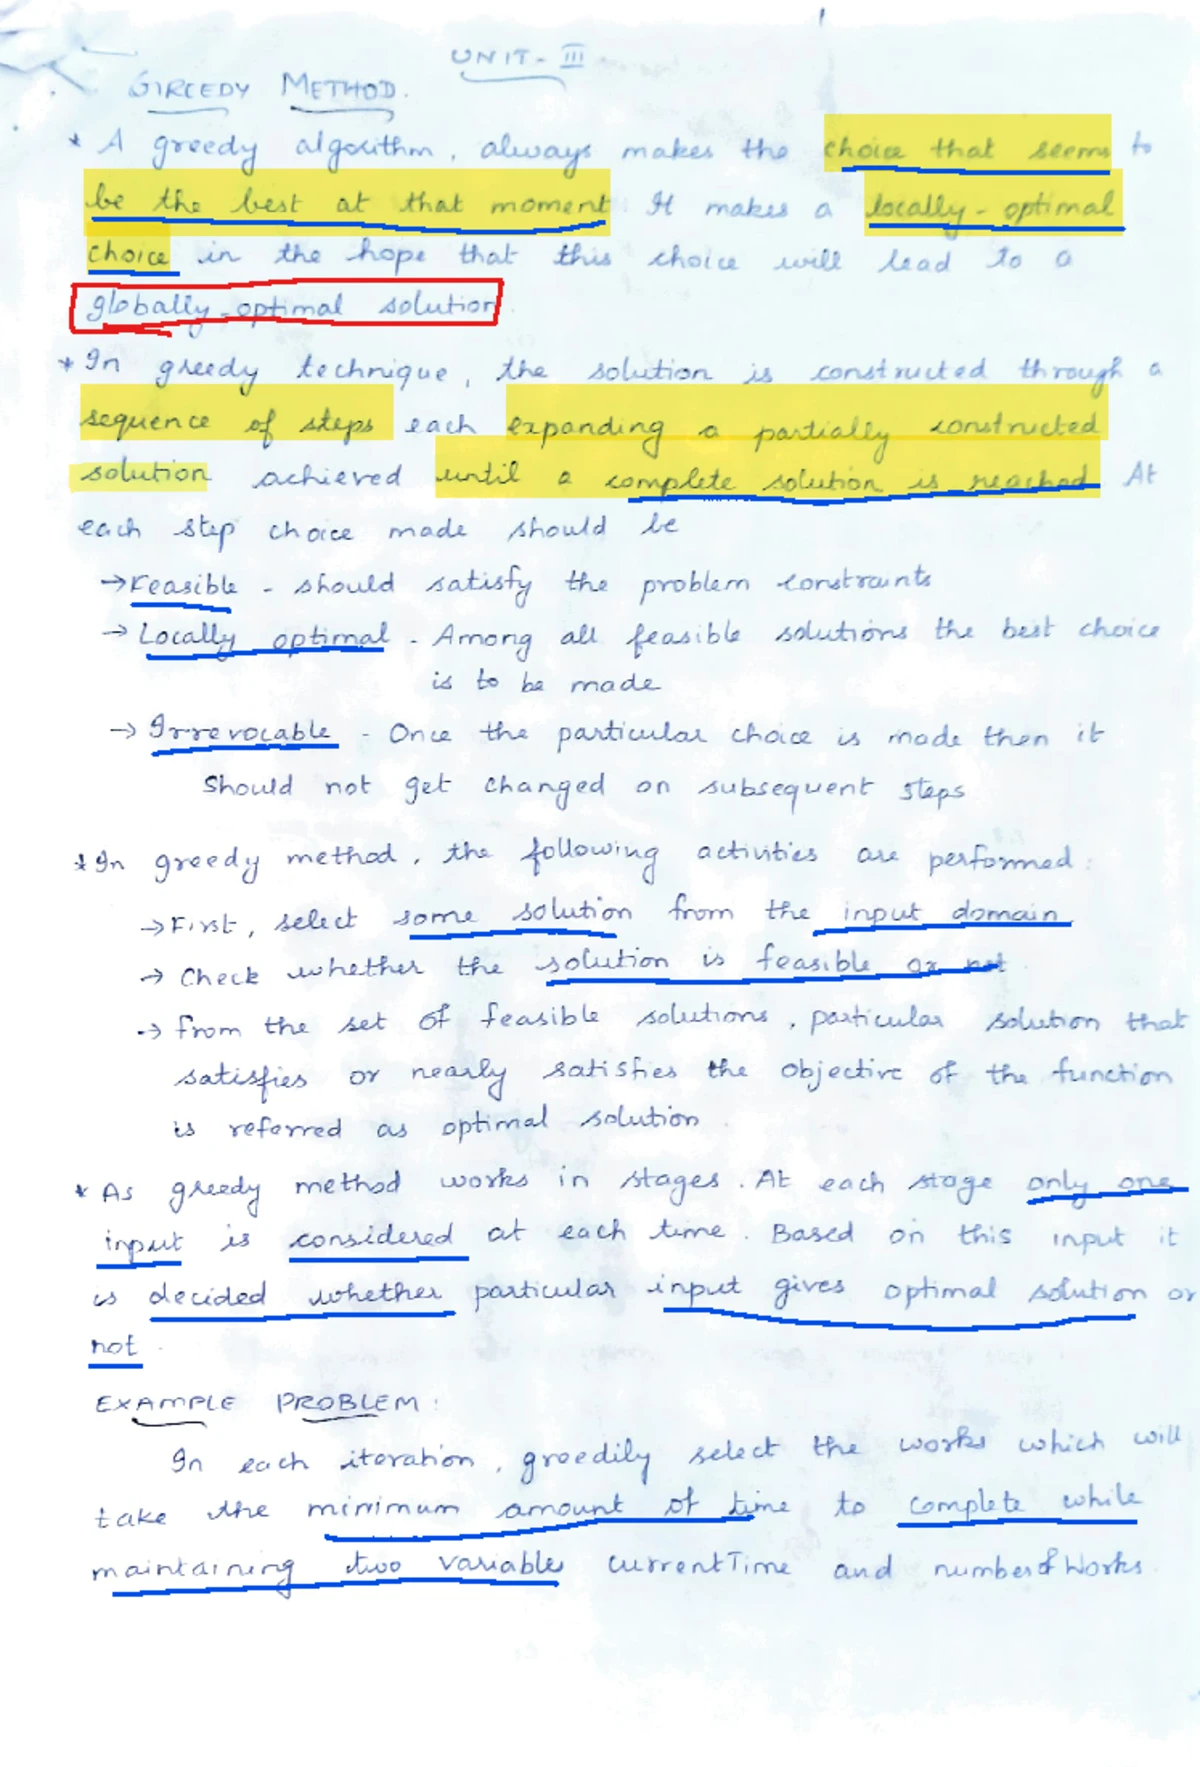 UNIT - III
GREEDY METHOD.
* A greedy algorithm, always makes the choice that seems to
be the best at that moment. It makes a locally-optimal
choice in the hope that this choice will lead to a
globally-optimal solution.
* In greedy technique, the solution is constructed through a
sequence of steps each expanding a partially constructed
solution achieved until a complete solution is reached. At
each step choice made should be
→ Feasible - should satisfy the problem constraints
→ Locally optimal - Among all feasible solutions the best choice
is to be made
→ Irrevocable - Once the particular choice is made then it
Should not get changed on subsequent steps
* In greedy method, the following activities are performed:
→ First, select some solution from the input domain
→ Check whether the solution is feasible or not
→ from the set of feasible solutions, particular solution that
satisfies or nearly satisfies the objective of the function
is referred as optimal solution
* As greedy method works in stages. At each stage only one
input is considered at each time. Based on this input it
is decided whether particular input gives optimal solution or
not.
EXAMPLE PROBLEM:
In each iteration, greedily select the works which will
take the minimum amount of time to complete while
maintaining two variables currentTime and numberofWorks.